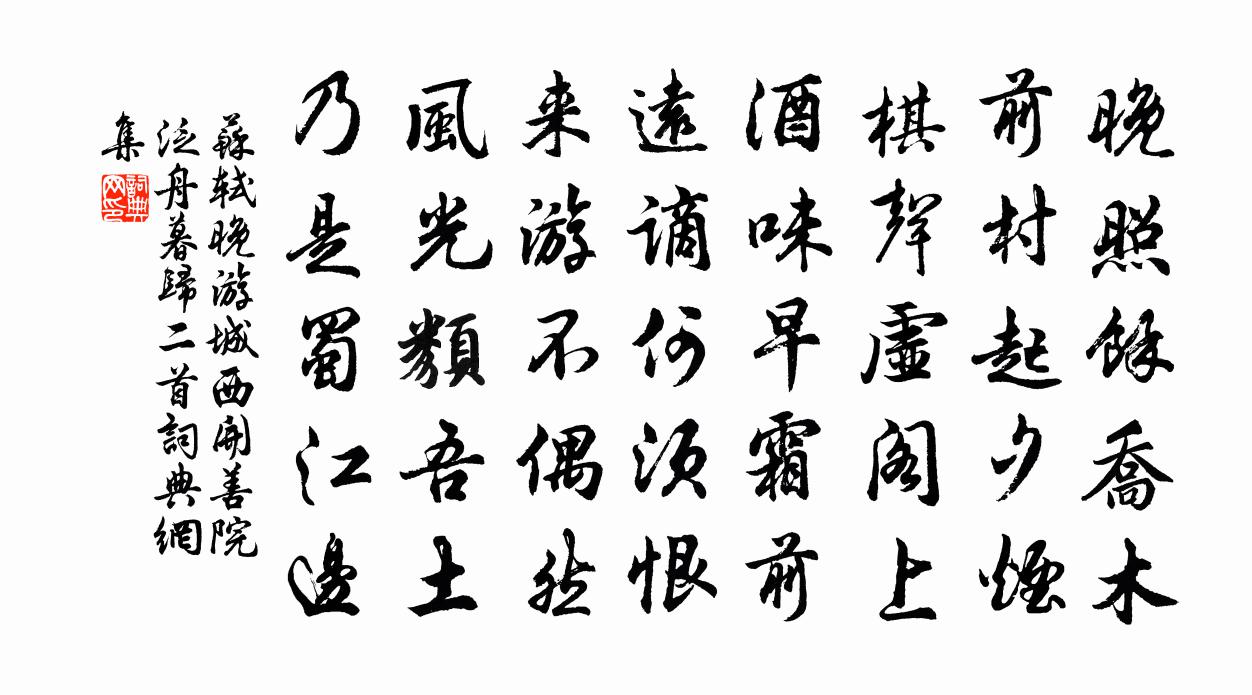 晚照餘喬木
前村起夕煙
棋聲虛閣上
酒味早霜前
遠謫何須恨
来游不偶然
風光類吾土
乃是蜀江邊
蘇軾晚游城西開善院
泛舟暮歸二首詞典網
集
詞典網印